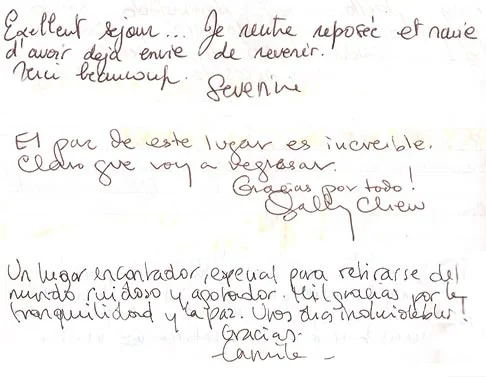 Exellent séjour... Je rentre reposée et ravie
d'avoir dejà envie de revenir.
Merci beaucoup.
Severine
El paz de este lugar es increible.
Claro que voy a regresar.
Gracias por todo!
Sally Chew
Un lugar encantador, especial para retirarse del
mundo ruidoso y agotador. Mil gracias por la
tranquilidad y la paz. Unos dias inolvidables!
Gracias-
-Camile-